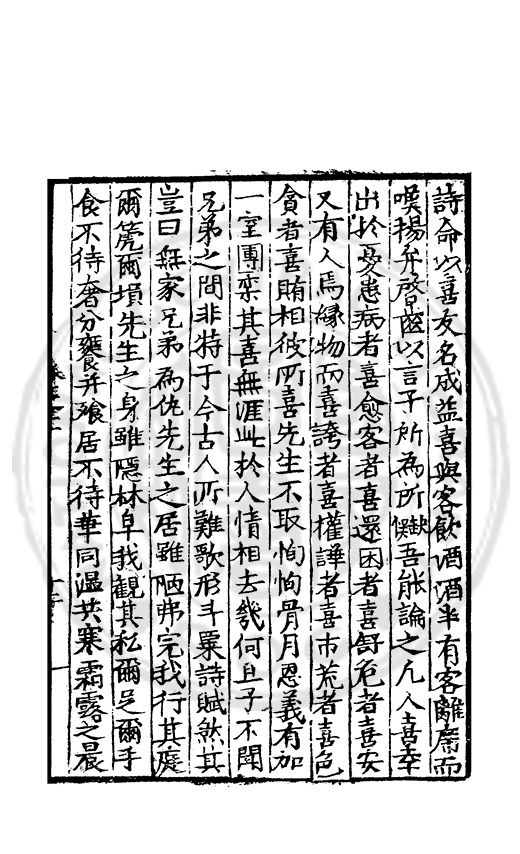 詩命以喜友名成益喜與客飲酒酒半有客離席而
嘆揚弁啓齒以言子所為所缺俟吾能論之凡人喜幸
出於憂患病者喜愈客者喜還困者喜舒危者喜安
又有人焉緣物而喜誇者喜權譁者喜市荒者喜色
貪者喜賄相彼所喜先生不取恂恂骨月恩義有加
一室團栾其喜無涯此於人情相去幾何且子不聞
兄弟之間非特于今古人所難歌形斗粟詩賦然其
豈曰無家兄弟為仇先生之居雖陋弗完我行其庭
爾箎爾塤先生之身雖隱林阜我觀其私爾足爾手
食不待奢分饔并飧居不待華同溫共寒霜露之晨